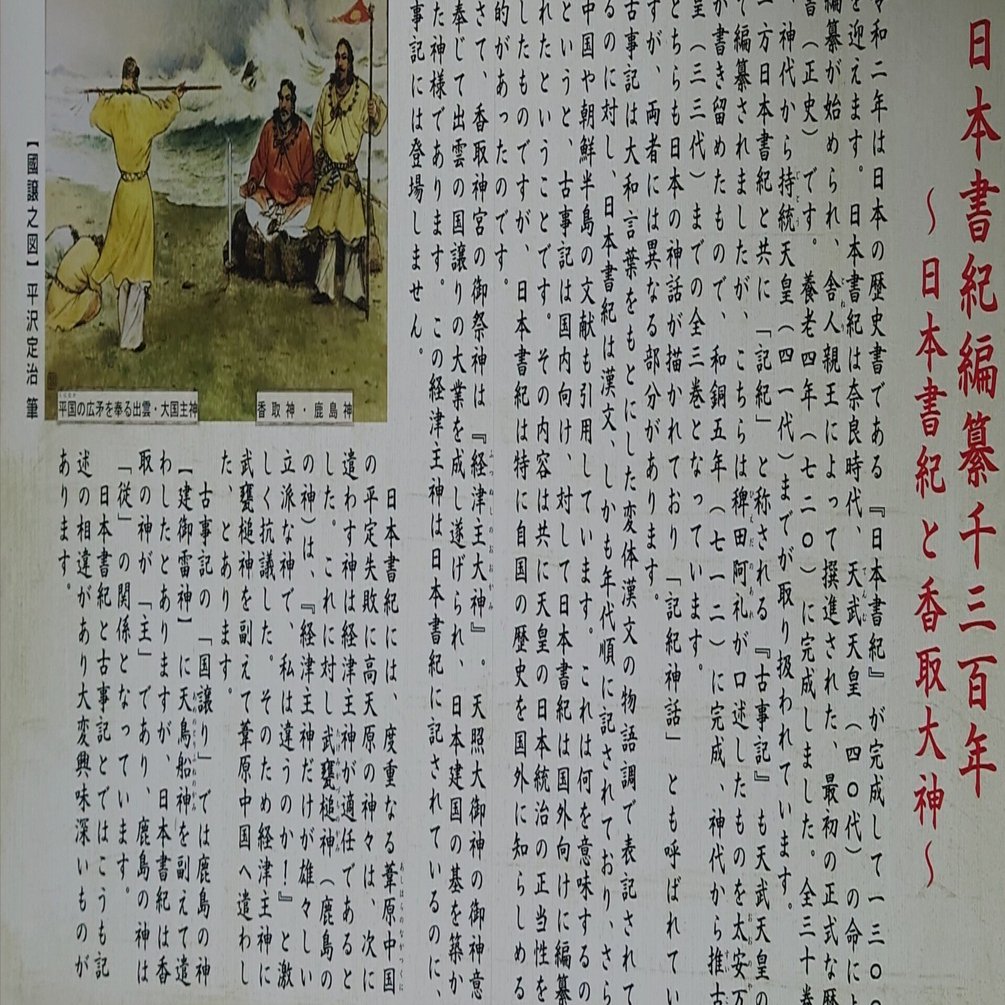 日本書紀編纂千三百年
～日本書紀と香取大神～
和二年は日本の歴史書である『日本書紀』が完成して一三〇
を迎えます。日本書紀は奈良時代、天武天皇（四〇代）の命に
編纂が始められ、舎人親王によって撰進された、最初の正式な歴
書（正史）です。養老四年（七二〇）に完成しました。全三十巻
、神代から持統天皇（四一代）までが取り扱われています。
一方日本書紀と共に「記紀」と称される『古事記』も天武天皇の
て編纂されましたが、こちらは稗田阿礼が口述したものを太安万
が書き留めたもので、和銅五年（七一二）に完成、神代から推古
皇（三三代）までの全三巻となっています。
どちらも日本の神話が描かれており、「記紀神話」とも呼ばれてい
すが、両者には異なる部分があります。
古事記は大和言葉をもとにした変体漢文の物語調で表記されて
るのに対し、日本書紀は漢文、しかも年代順に記されており、さら
中国や朝鮮半島の文献も引用しています。これは何を意味するの
というと、古事記は国内向け、対して日本書紀は国外向けに編纂
れたということです。その内容は共に天皇の日本統治の正当性を
したものですが、日本書紀は特に自国の歴史を国外に知らしめる
的があったのです。
さて、香取神宮の御祭神は『経津主大神』。天照大御神の御神意
奉じて出雲の国譲りの大業を成し遂げられ、日本建国の基を築か
た神様であります。この経津主神は日本書紀に記されているのに、
事記には登場しません。
日本書紀には、度重なる葦原中国
の平定失敗に高天原の神々は、次に
遣わす神は経津主神が適任であると
した。これに対し武甕槌神（鹿島の
の神）は、『経津主神だけが雄々しい
立派な神で、私は違うのか！』と激
しく抗議した。そのため経津主神に
武甕槌神を副えて葦原中国へ遣わし
た、とあります。
古事記の「国譲り」では鹿島の神
【建御雷神】に天鳥船神を副えて遣
わしたとありますが、日本書紀は香
取の神が「主」であり、鹿島の神は
「従」の関係となっています。
日本書紀と古事記とではこうも記
述の相違があり大変興味深いものが
あります。
香取神・鹿島神
平国の広矛を奉る出雲・大国主神
【國譲之図】平沢定治 筆